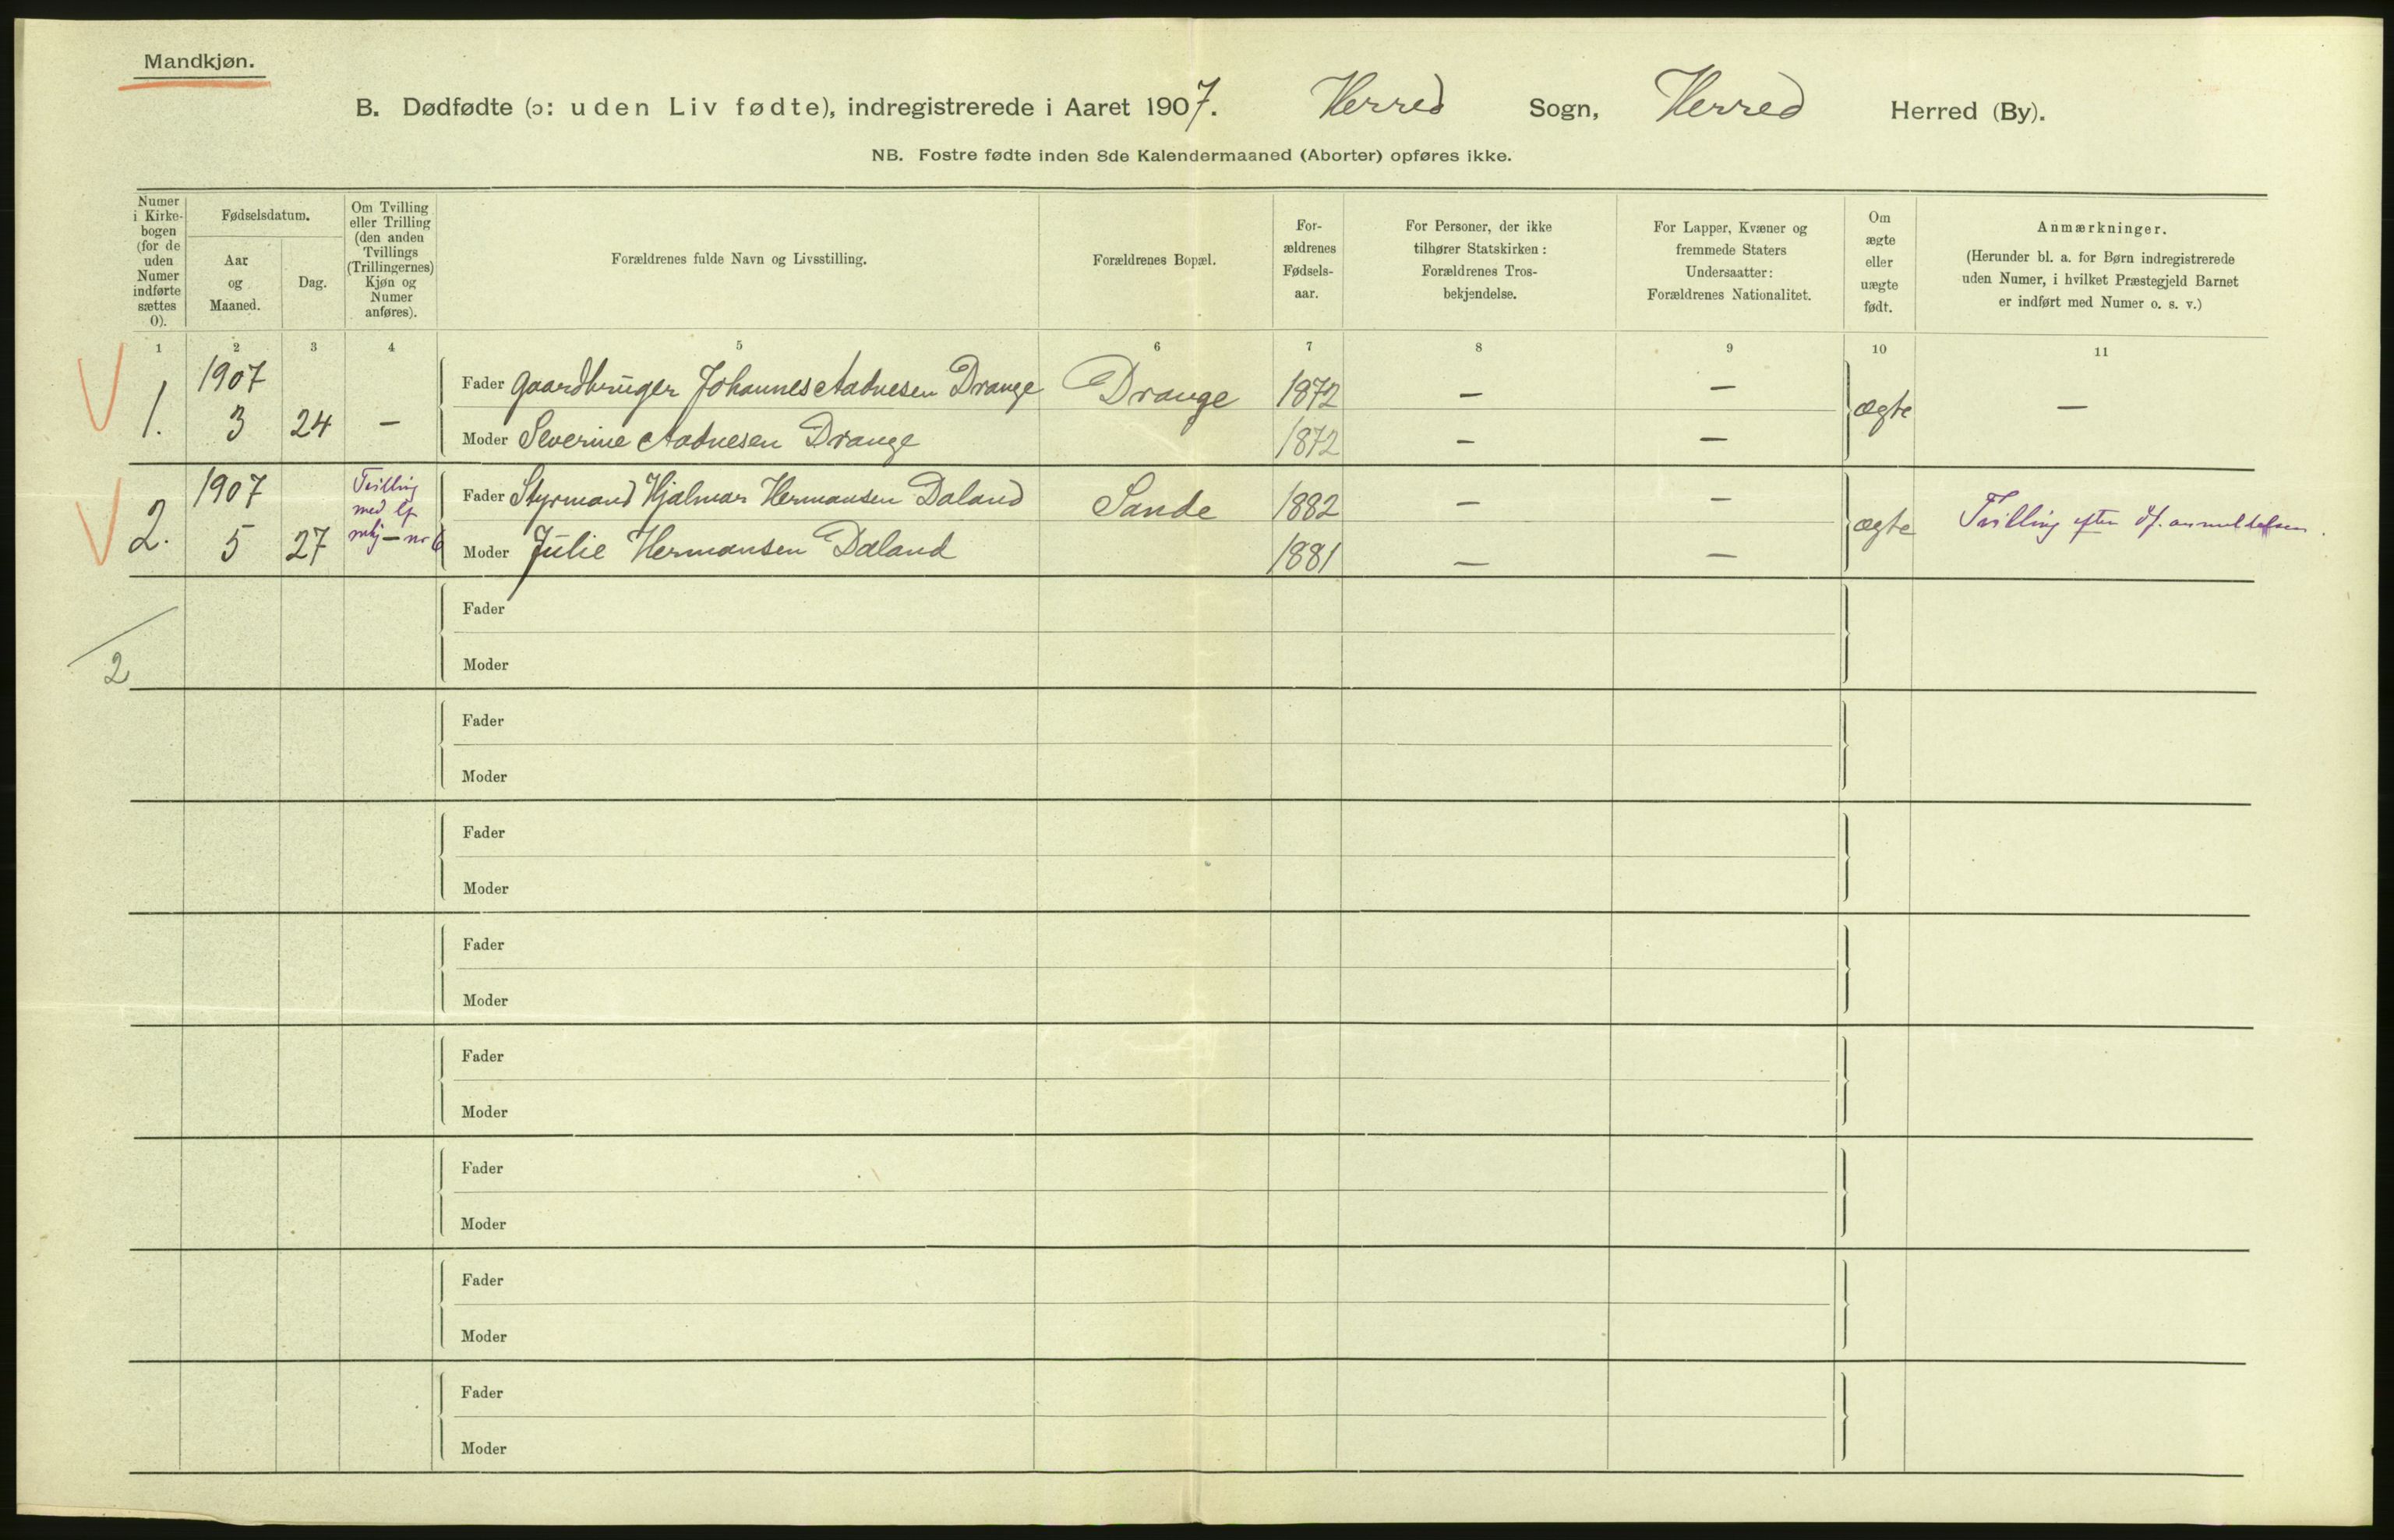 Mandkjøn.
B. Dødfødte (ɔ: uden Liv fødte), indregistrerede i Aaret 1907. Herred Sogn, Herred Herred (By).
NB. Fostre fødte inden 8de Kalendermaaned (Aborter) opføres ikke.
Numer
i Kirke-
bogen
(for de
uden
Numer
indførte
sættes
0).
Fødselsdatum.
Aar
og
Maaned.
Dag.
Om Tvilling
eller Trilling
(den anden
Tvillings
(Trillingernes)
Kjøn og
Numer
anføres).
Forældrenes fulde Navn og Livsstilling.
Forældrenes Bopæl.
For-
ældrenes
Fødsels-
aar.
For Personer, der ikke
tilhører Statskirken:
Forældrenes Tros-
bekjendelse.
For Lapper, Kvæner og
fremmede Staters
Undersaatter:
Forældrenes Nationalitet.
Om
ægte
eller
uægte
født.
Anmærkninger.
(Herunder bl. a. for Børn indregistrerede
uden Numer, i hvilket Præstegjeld Barnet
er indført med Numer o. s. v.)
1 2 3 4 5 6 7 8 9 10 11
1. 1907 3 24 –
Fader Gaardbruger Johannes Aadnesen Drange Drange 1872 – – ægte –
Moder Severine Aadnesen Drange 1872 – –
2. 1907 5 27
Tvilling
med lf
mkj – nr 6
Fader Styrmand Hjalmar Hermansen Daland Sande 1882 – – ægte Tvilling efter df. anmeldelsen.
Moder Julie Hermansen Daland 1881 – –
2
Fader
Moder
Fader
Moder
Fader
Moder
Fader
Moder
Fader
Moder
Fader
Moder
Fader
Moder
Fader
Moder